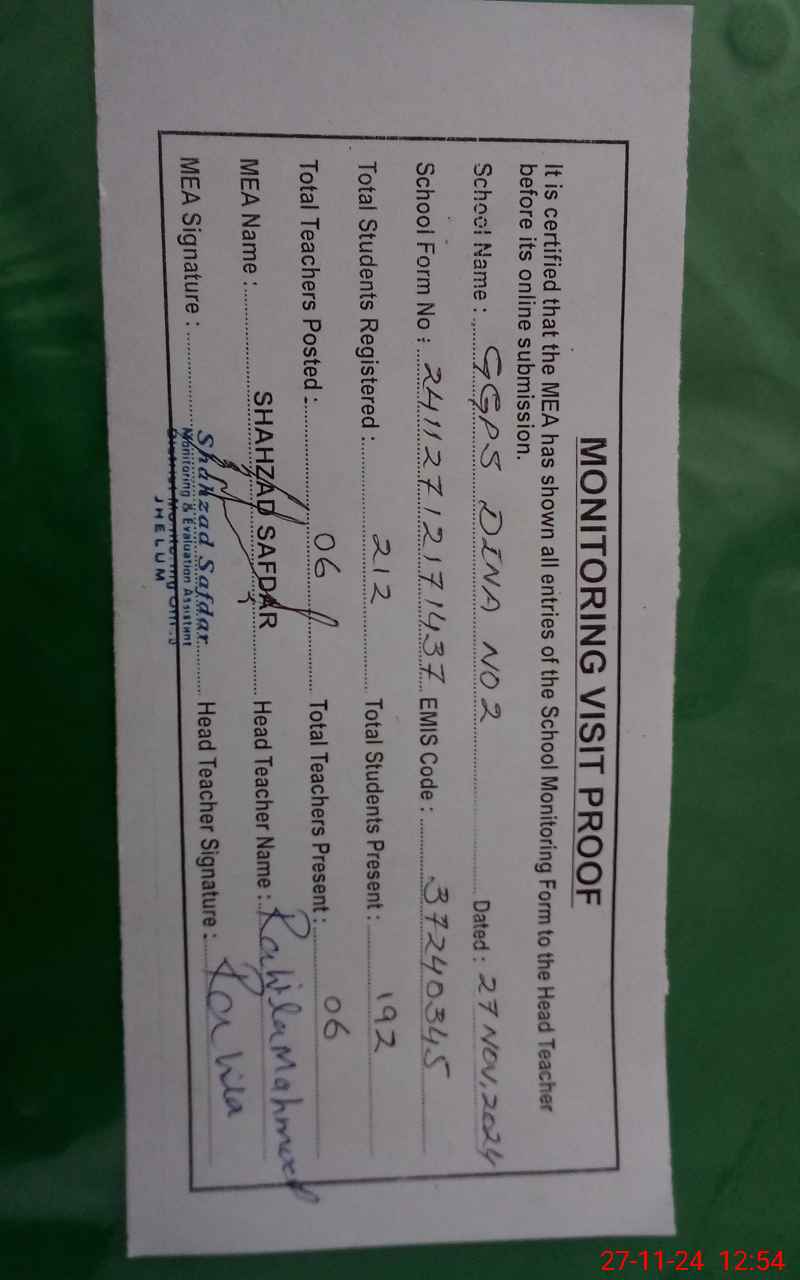 MONITORING VISIT PROOF
It is certified that the MEA has shown all entries of the School Monitoring Form to the Head Teacher
before its online submission.
School Name : GGPS DINA NO 2 Dated : 27 NOV, 2024
School Form No : 24112712171437 EMIS Code : 37240345
Total Students Registered : 212 Total Students Present : 192
Total Teachers Posted : 06 Total Teachers Present : 06
MEA Name : SHAHZAD SAFDAR Head Teacher Name : Rahila Mahmood
MEA Signature : Head Teacher Signature : Rahila
Shahzad Safdar
Monitoring & Evaluation Assistant
District Monitoring
JHELUM
27-11-24 12:54